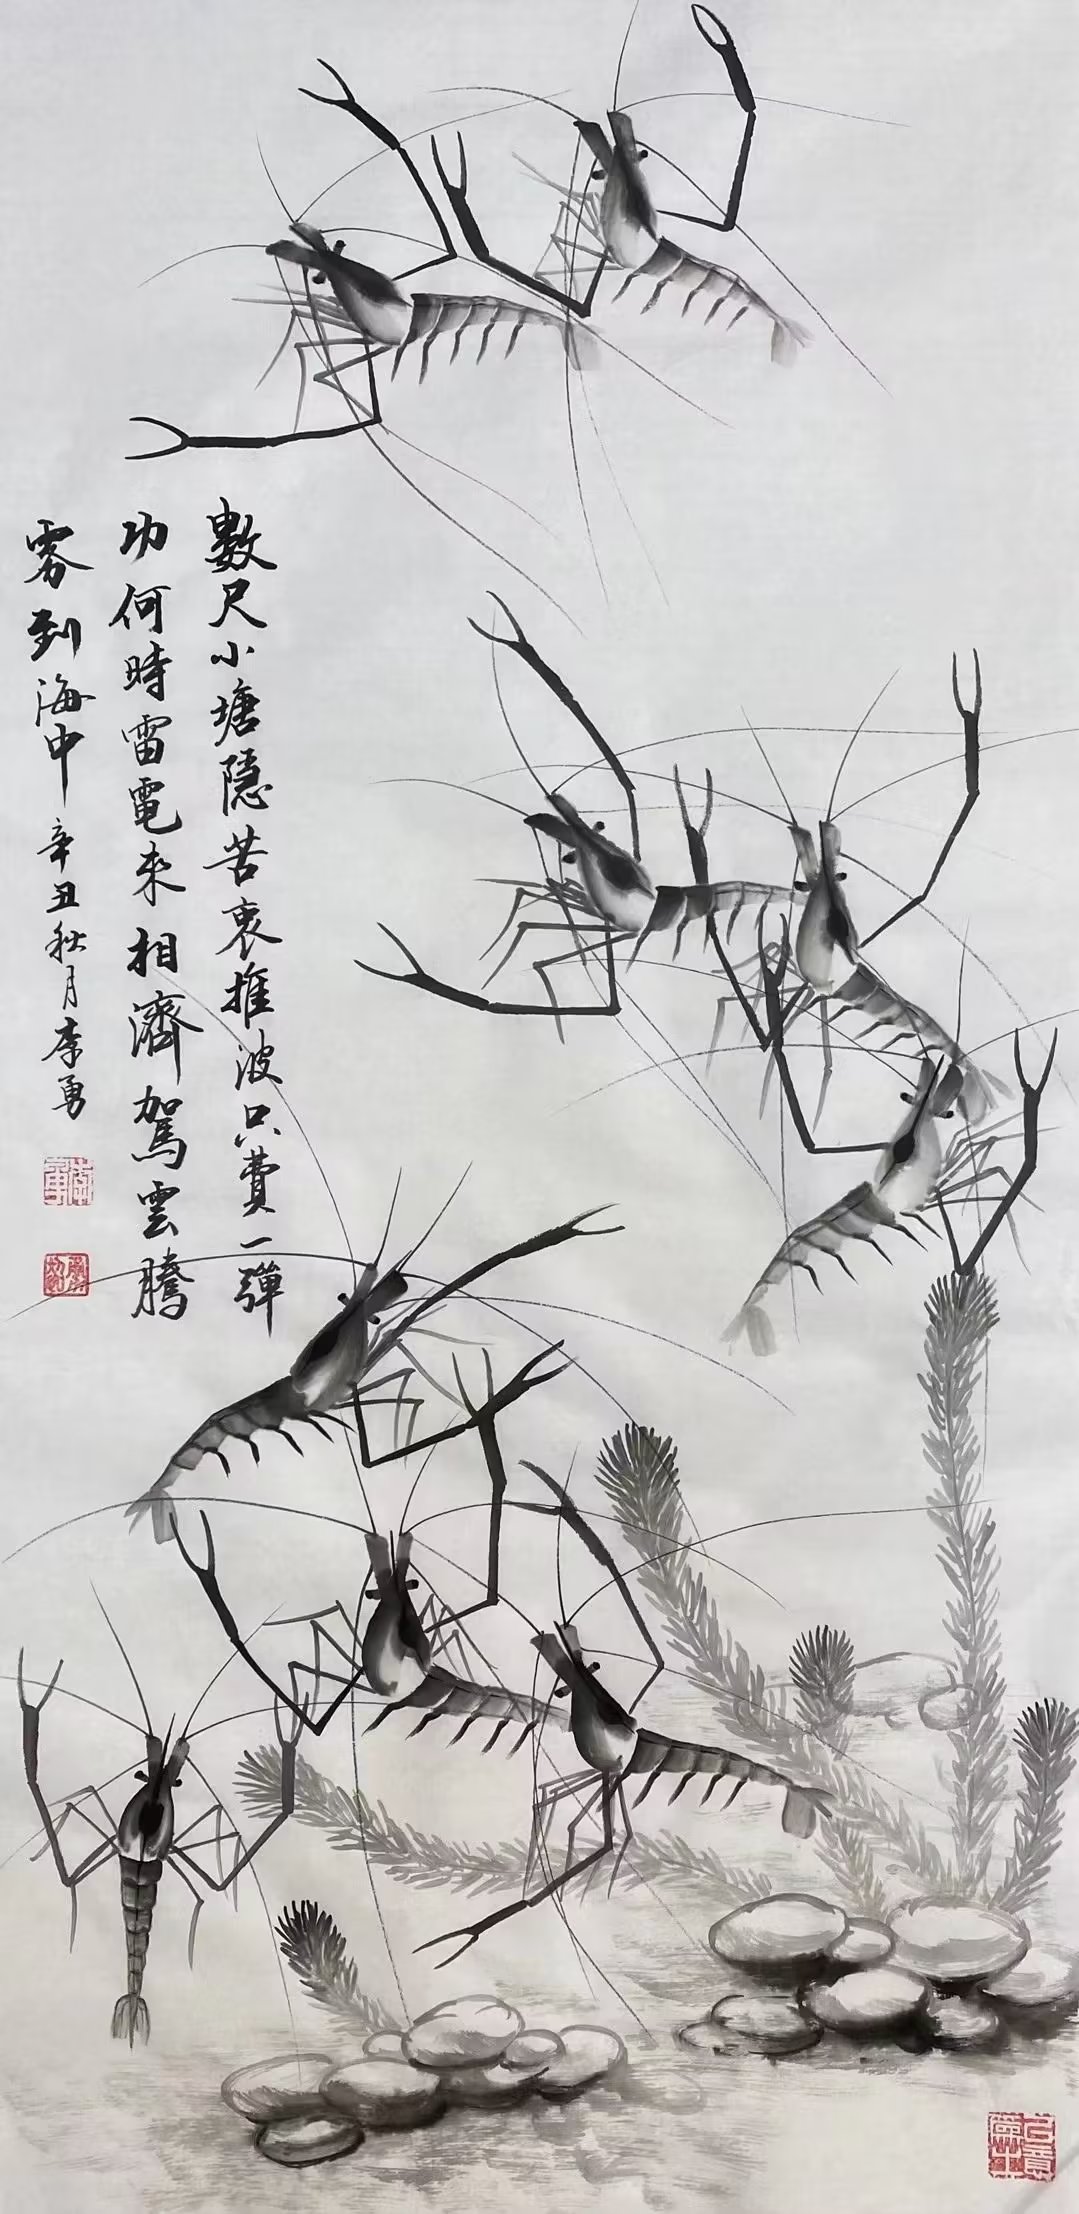 數尺小塘隱苦衷推波只費一彈
功何時雷電來相濟駕雲騰
雾到海中 辛丑秋月李勇